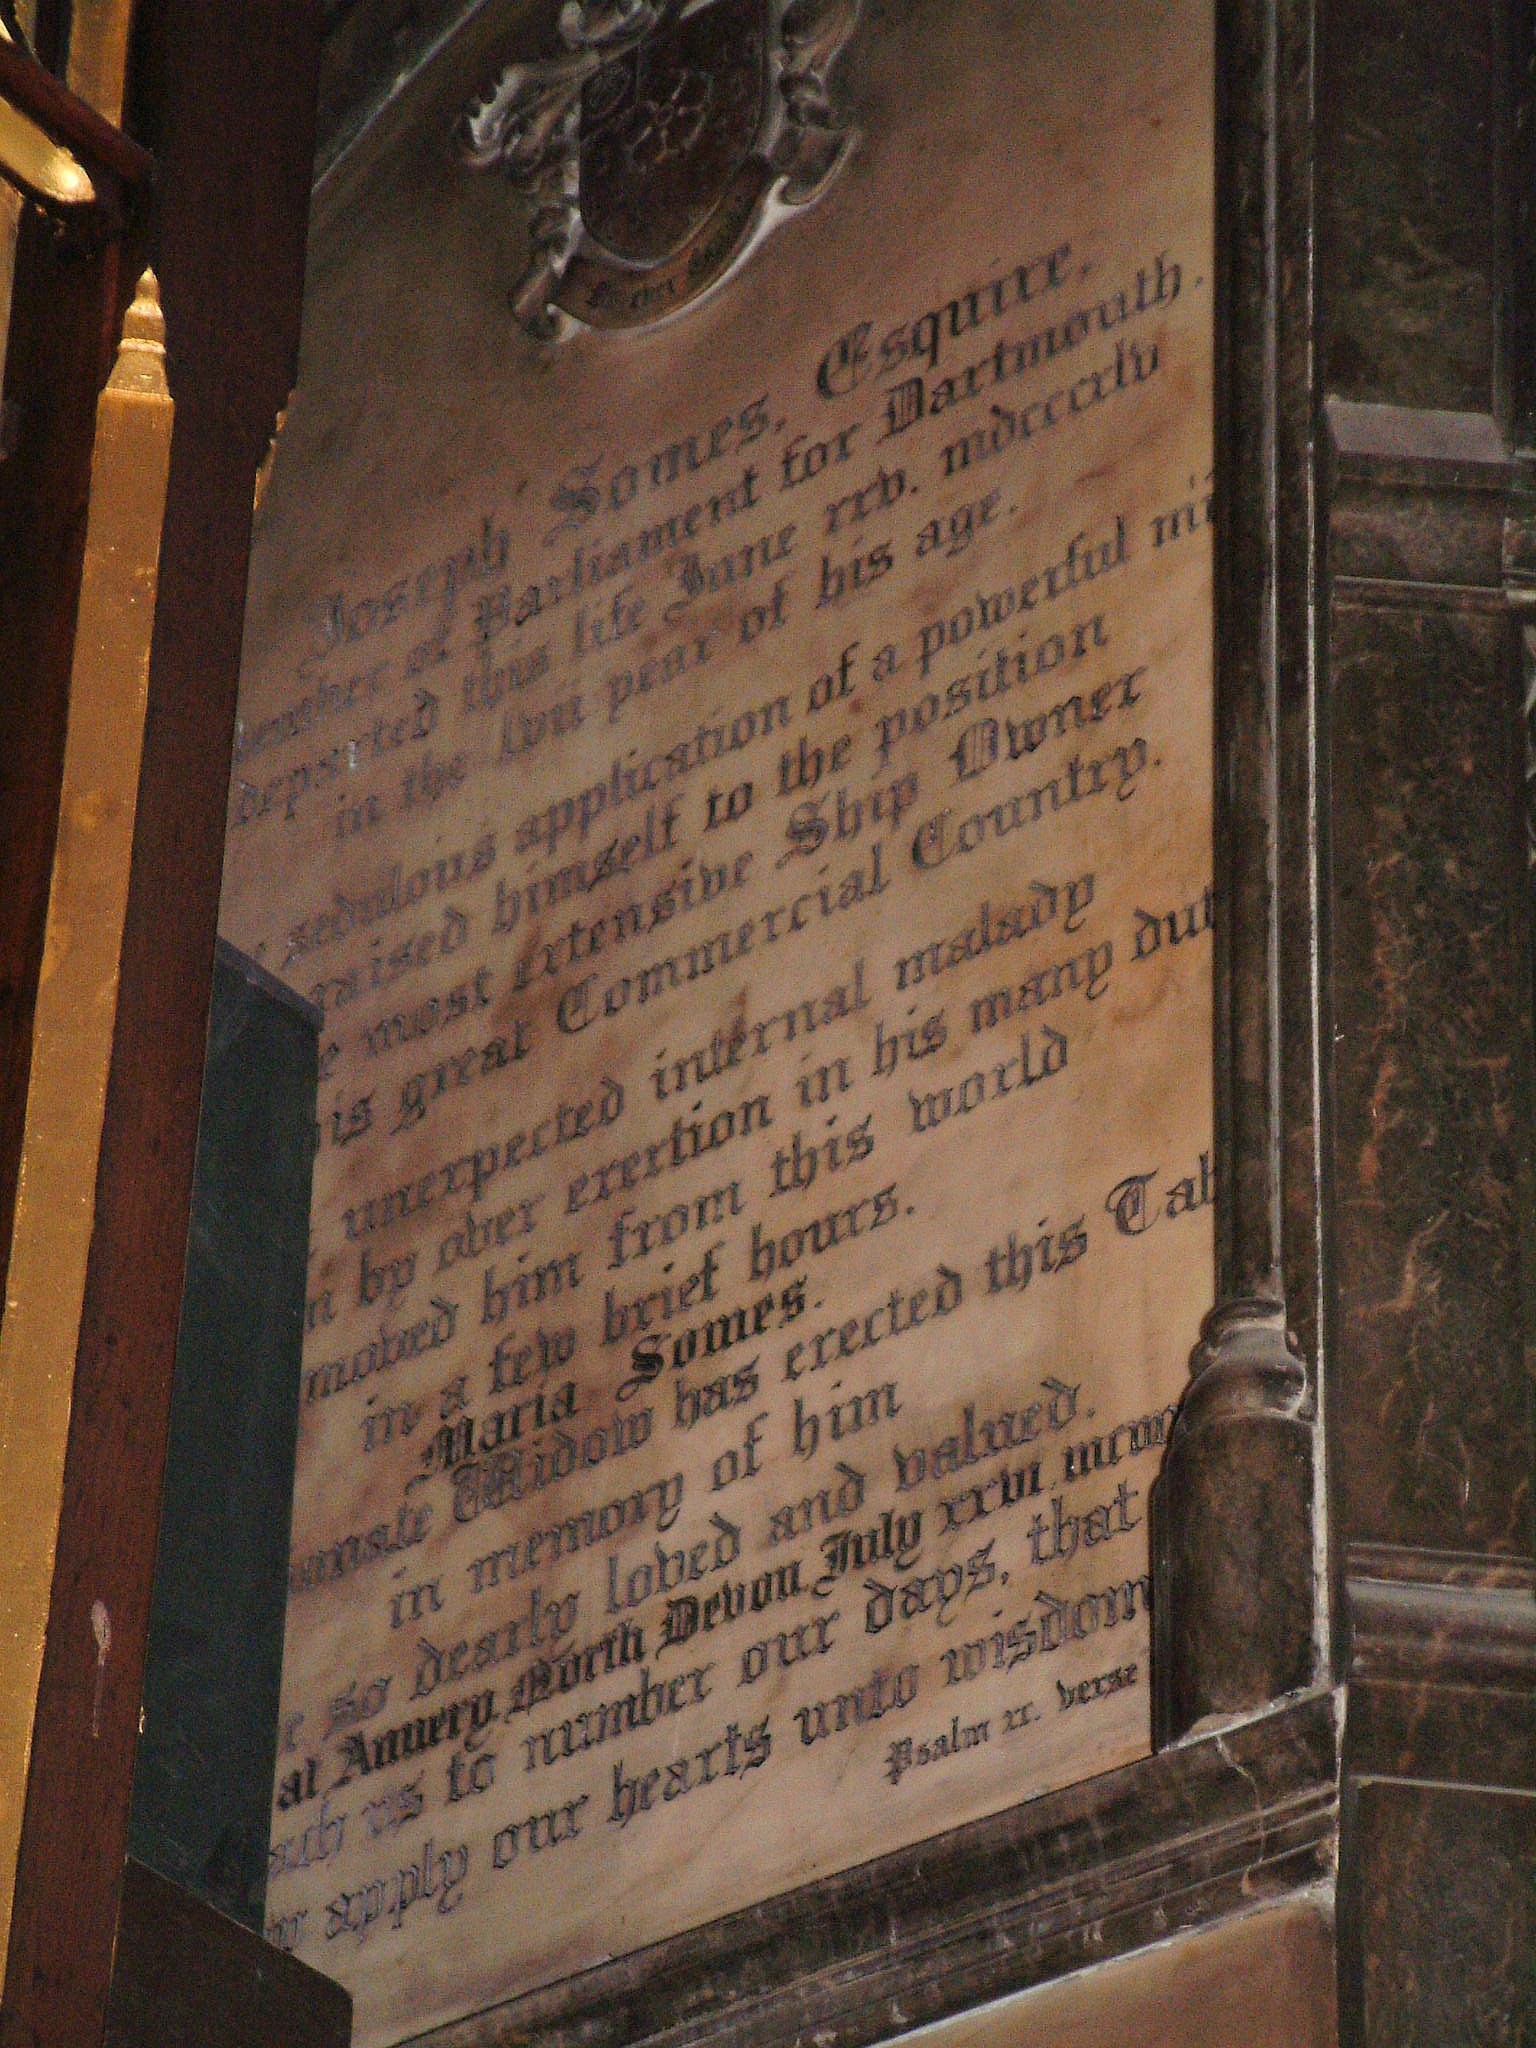 Joseph Somes, Esquire,
ember of Parliament for Dartmouth.
departed this life June xxv. mdcccxlv
in the lvii year of his age.
sedulous application of a powerful mi
raised himself to the position
e most extensive Ship Owner
is great Commercial Country.
unexpected internal malady
n by over exertion in his many dut
moved him from this world
in a few brief hours.
Maria Somes.
ionate Widow has erected this Tab
in memory of him
r so dearly loved and valued.
at Annery North Devon July xxvi
ach us to number our days, that
apply our hearts unto wisdom
Psalm xc. verse